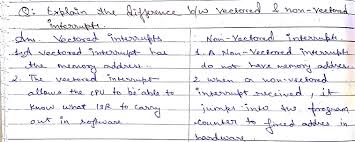 Q: Explain the difference b/w vectored & non-vectored
interrupts.
Ans Vectored Interrupts
1. A vectored interrupt has
the memory address.
2. The vectored interrupt
allows the CPU to be able to
know what ISR to carry
out in software
Non-Vectored interrupts
1. A Non-Vectored interrupts
do not have memory address.
2 when a non-vectored
interrupt received, it
jumps into the program
counter to fixed addres in
hardware.